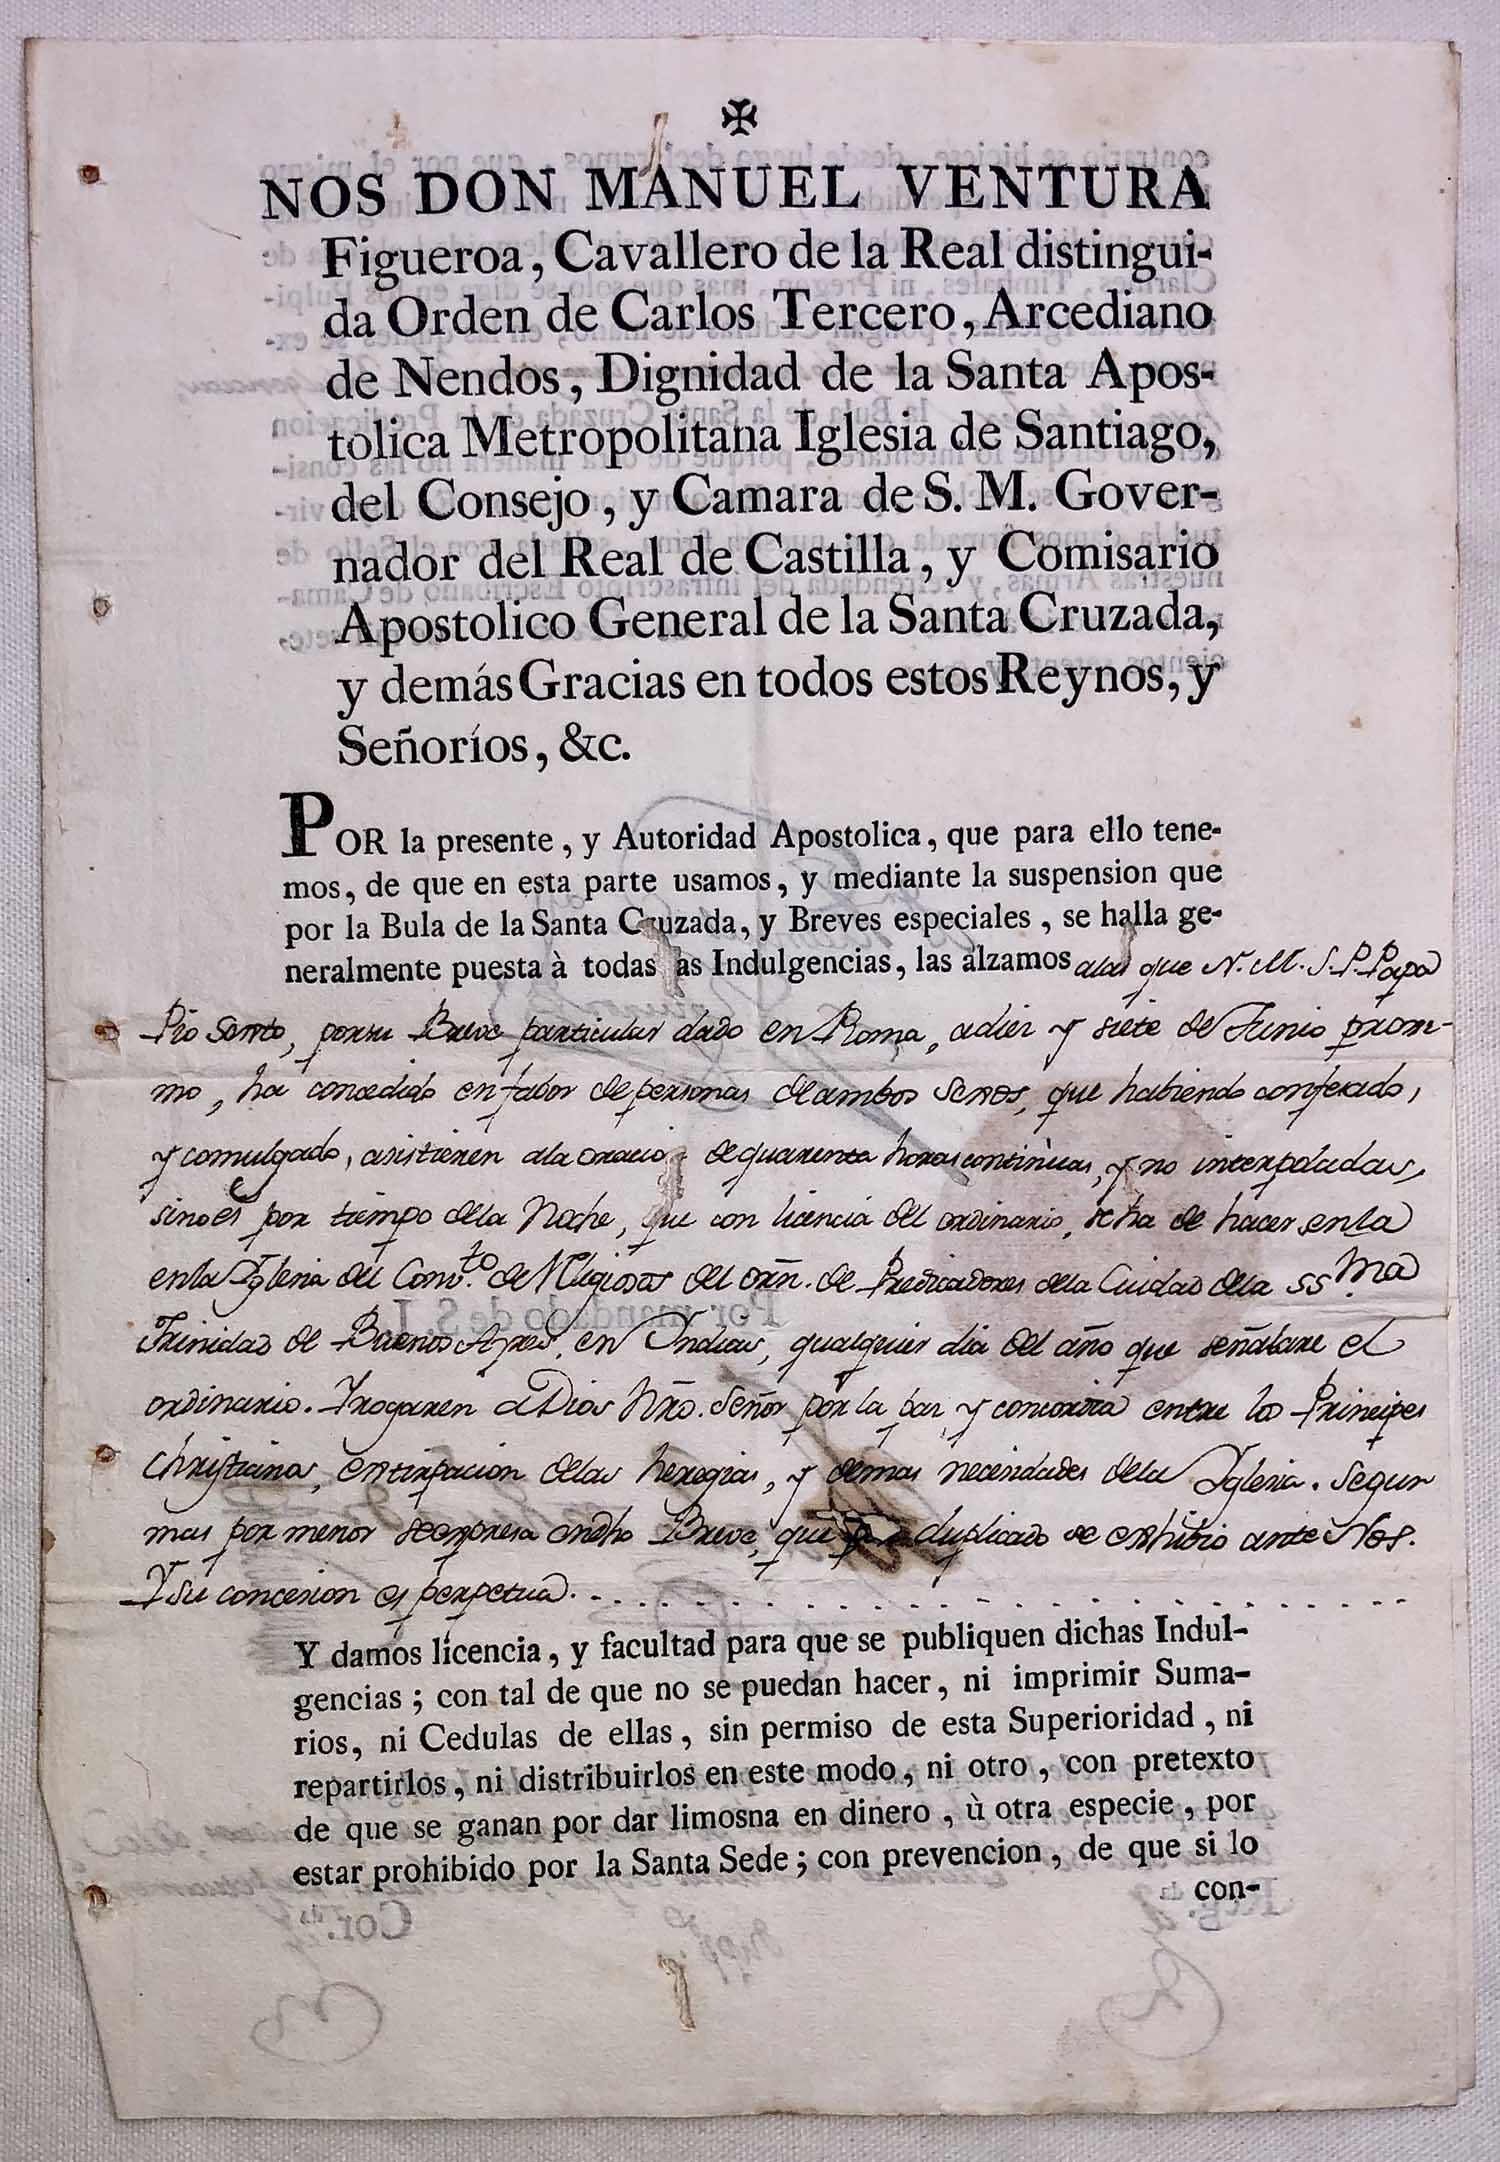 ✠
NOS DON MANUEL VENTURA
Figueroa, Cavallero de la Real distingui-
da Orden de Carlos Tercero, Arcediano
de Nendos, Dignidad de la Santa Apos-
tolica Metropolitana Iglesia de Santiago,
del Consejo, y Camara de S. M. Gover-
nador del Real de Castilla, y Comisario
Apostolico General de la Santa Cruzada,
y demás Gracias en todos estos Reynos, y
Señoríos, &c.
POR la presente, y Autoridad Apostolica, que para ello tene-
mos, de que en esta parte usamos, y mediante la suspension que
por la Bula de la Santa Cruzada, y Breves especiales, se halla ge-
neralmente puesta à todas as Indulgencias, las alzamos alas que N. M. S. P. Papa
Pio Sexto, por su Breve particular dado en Roma, a diez y siete de Junio proxi-
mo, ha concedido en fabor de personas de ambos sexos, que habiendo confesado,
y comulgado, asistieren ala oracion de quarenta horas continuas, y no interpoladas,
sino es por tiempo dela Noche, que con licencia del ordinario, se ha de hacer en la
en la Iglesia del Conv.to de Religiosos del orñ. de Predicadores dela Ciudad dela SS.ma
Trinidad de Buenos Ayres, en Indias, qualquier dia del año que señalare el
ordinario. Y rogaren a Dios Nrõ. Señor por la paz, y concordia entre los Principes
Christianos, extirpacion delas heregias, y demas necesidades dela Iglesia. Segun
mas por menor se expresa en dho Breve, que duplicado se exhibio ante Nos.
Y su concesion es perpetua.
Y damos licencia, y facultad para que se publiquen dichas Indul-
gencias; con tal de que no se puedan hacer, ni imprimir Suma-
rios, ni Cedulas de ellas, sin permiso de esta Superioridad, ni
repartirlos, ni distribuirlos en este modo, ni otro, con pretexto
de que se ganan por dar limosna en dinero, ù otra especie, por
estar prohibido por la Santa Sede; con prevencion, de que si lo
con-